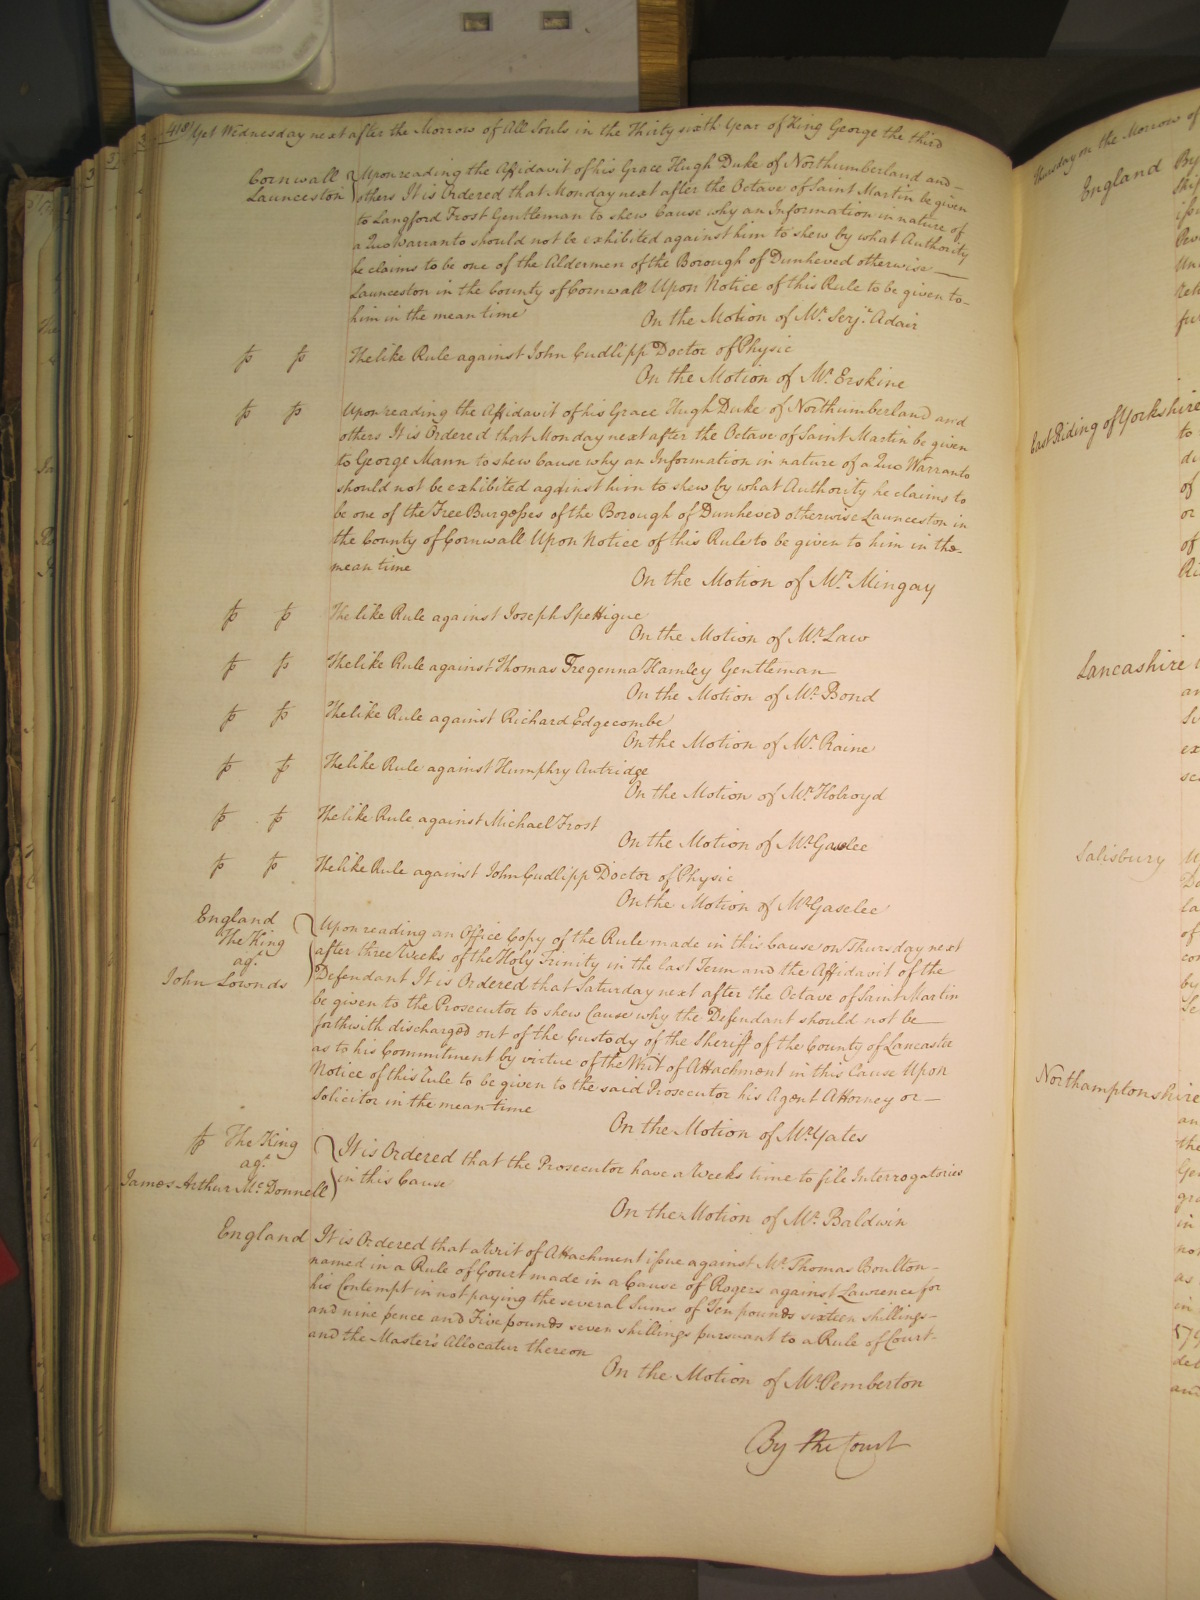 418 Yet Wednesday next after the Morrow of All Souls in the Thirty sixth Year of King George the third
Cornwall Upon reading the Affidavit of his Grace Hugh Duke of Northumberland and
Launceston others It is Ordered that Monday next after the Octave of Saint Martin be given
to Langford Frost Gentleman to shew Cause why an Information in nature of
a Quo Warranto should not be exhibited against him to shew by what Authority
he claims to be one of the Aldermen of the Borough of Dunheved otherwise
Launceston in the County of Cornwall Upon Notice of this Rule to be given to
him in the mean time
On the Motion of Mr. Serjt. Adair
The like Rule against John Cudlipp Doctor of Physic
On the Motion of Mr. Erskine
Upon reading the Affidavit of his Grace Hugh Duke of Northumberland and
others It is Ordered that Monday next after the Octave of Saint Martin be given
to George Mann to shew Cause why an Information in nature of a Quo Warranto
should not be exhibited against him to shew by what Authority he claims to
be one of the Free Burgesses of the Borough of Dunheved otherwise Launceston in
the County of Cornwall Upon Notice of this Rule to be given to him in the
mean time
On the Motion of Mr. Mingay
The like Rule against Joseph Spettigue
On the Motion of Mr. Law
The like Rule against Thomas Tregenna Hamley Gentleman
On the Motion of Mr. Bond
The like Rule against Richard Edgecombe
On the Motion of Mr. Raine
The like Rule against Humphry Autridge
On the Motion of Mr. Holroyd
The like Rule against Michael Frost
On the Motion of Mr. Gaselee
The like Rule against John Cudlipp Doctor of Physic
On the Motion of Mr. Gaselee
England
The King
agt.
John Lownds
Upon reading an Office Copy of the Rule made in this Cause on Thursday next
after three Weeks of the Holy Trinity in the last Term and the Affidavit of the
Defendant It is Ordered that Saturday next after the Octave of Saint Martin
be given to the Prosecutor to shew Cause why the Defendant should not be
forthwith discharged out of the Custody of the Sheriff of the County of Lancaster
as to his Commitment by virtue of the Writ of Attachment in this Cause Upon
Notice of this Rule to be given to the said Prosecutor his Agent Attorney or
Solicitor in the mean time
On the Motion of Mr. Yates
The King
agt.
James Arthur Mc. Donnell
It is Ordered that the Prosecutor have a Weeks time to file Interrogatories
in this Cause
On the Motion of Mr. Baldwin
England It is Ordered that a Writ of Attachment issue against Mr. Thomas Boulton
named in a Rule of Court made in a Cause of Rogers against Lawrence for
his Contempt in not paying the several Sums of Ten pounds sixteen shillings
and nine pence and Five pounds seven shillings pursuant to a Rule of Court
and the Master's Allocatur thereon
On the Motion of Mr. Pemberton
By the Court
Thursday on the Morrow of
England
East Riding of Yorkshire
Lancashire
Salisbury
Northamptonshire